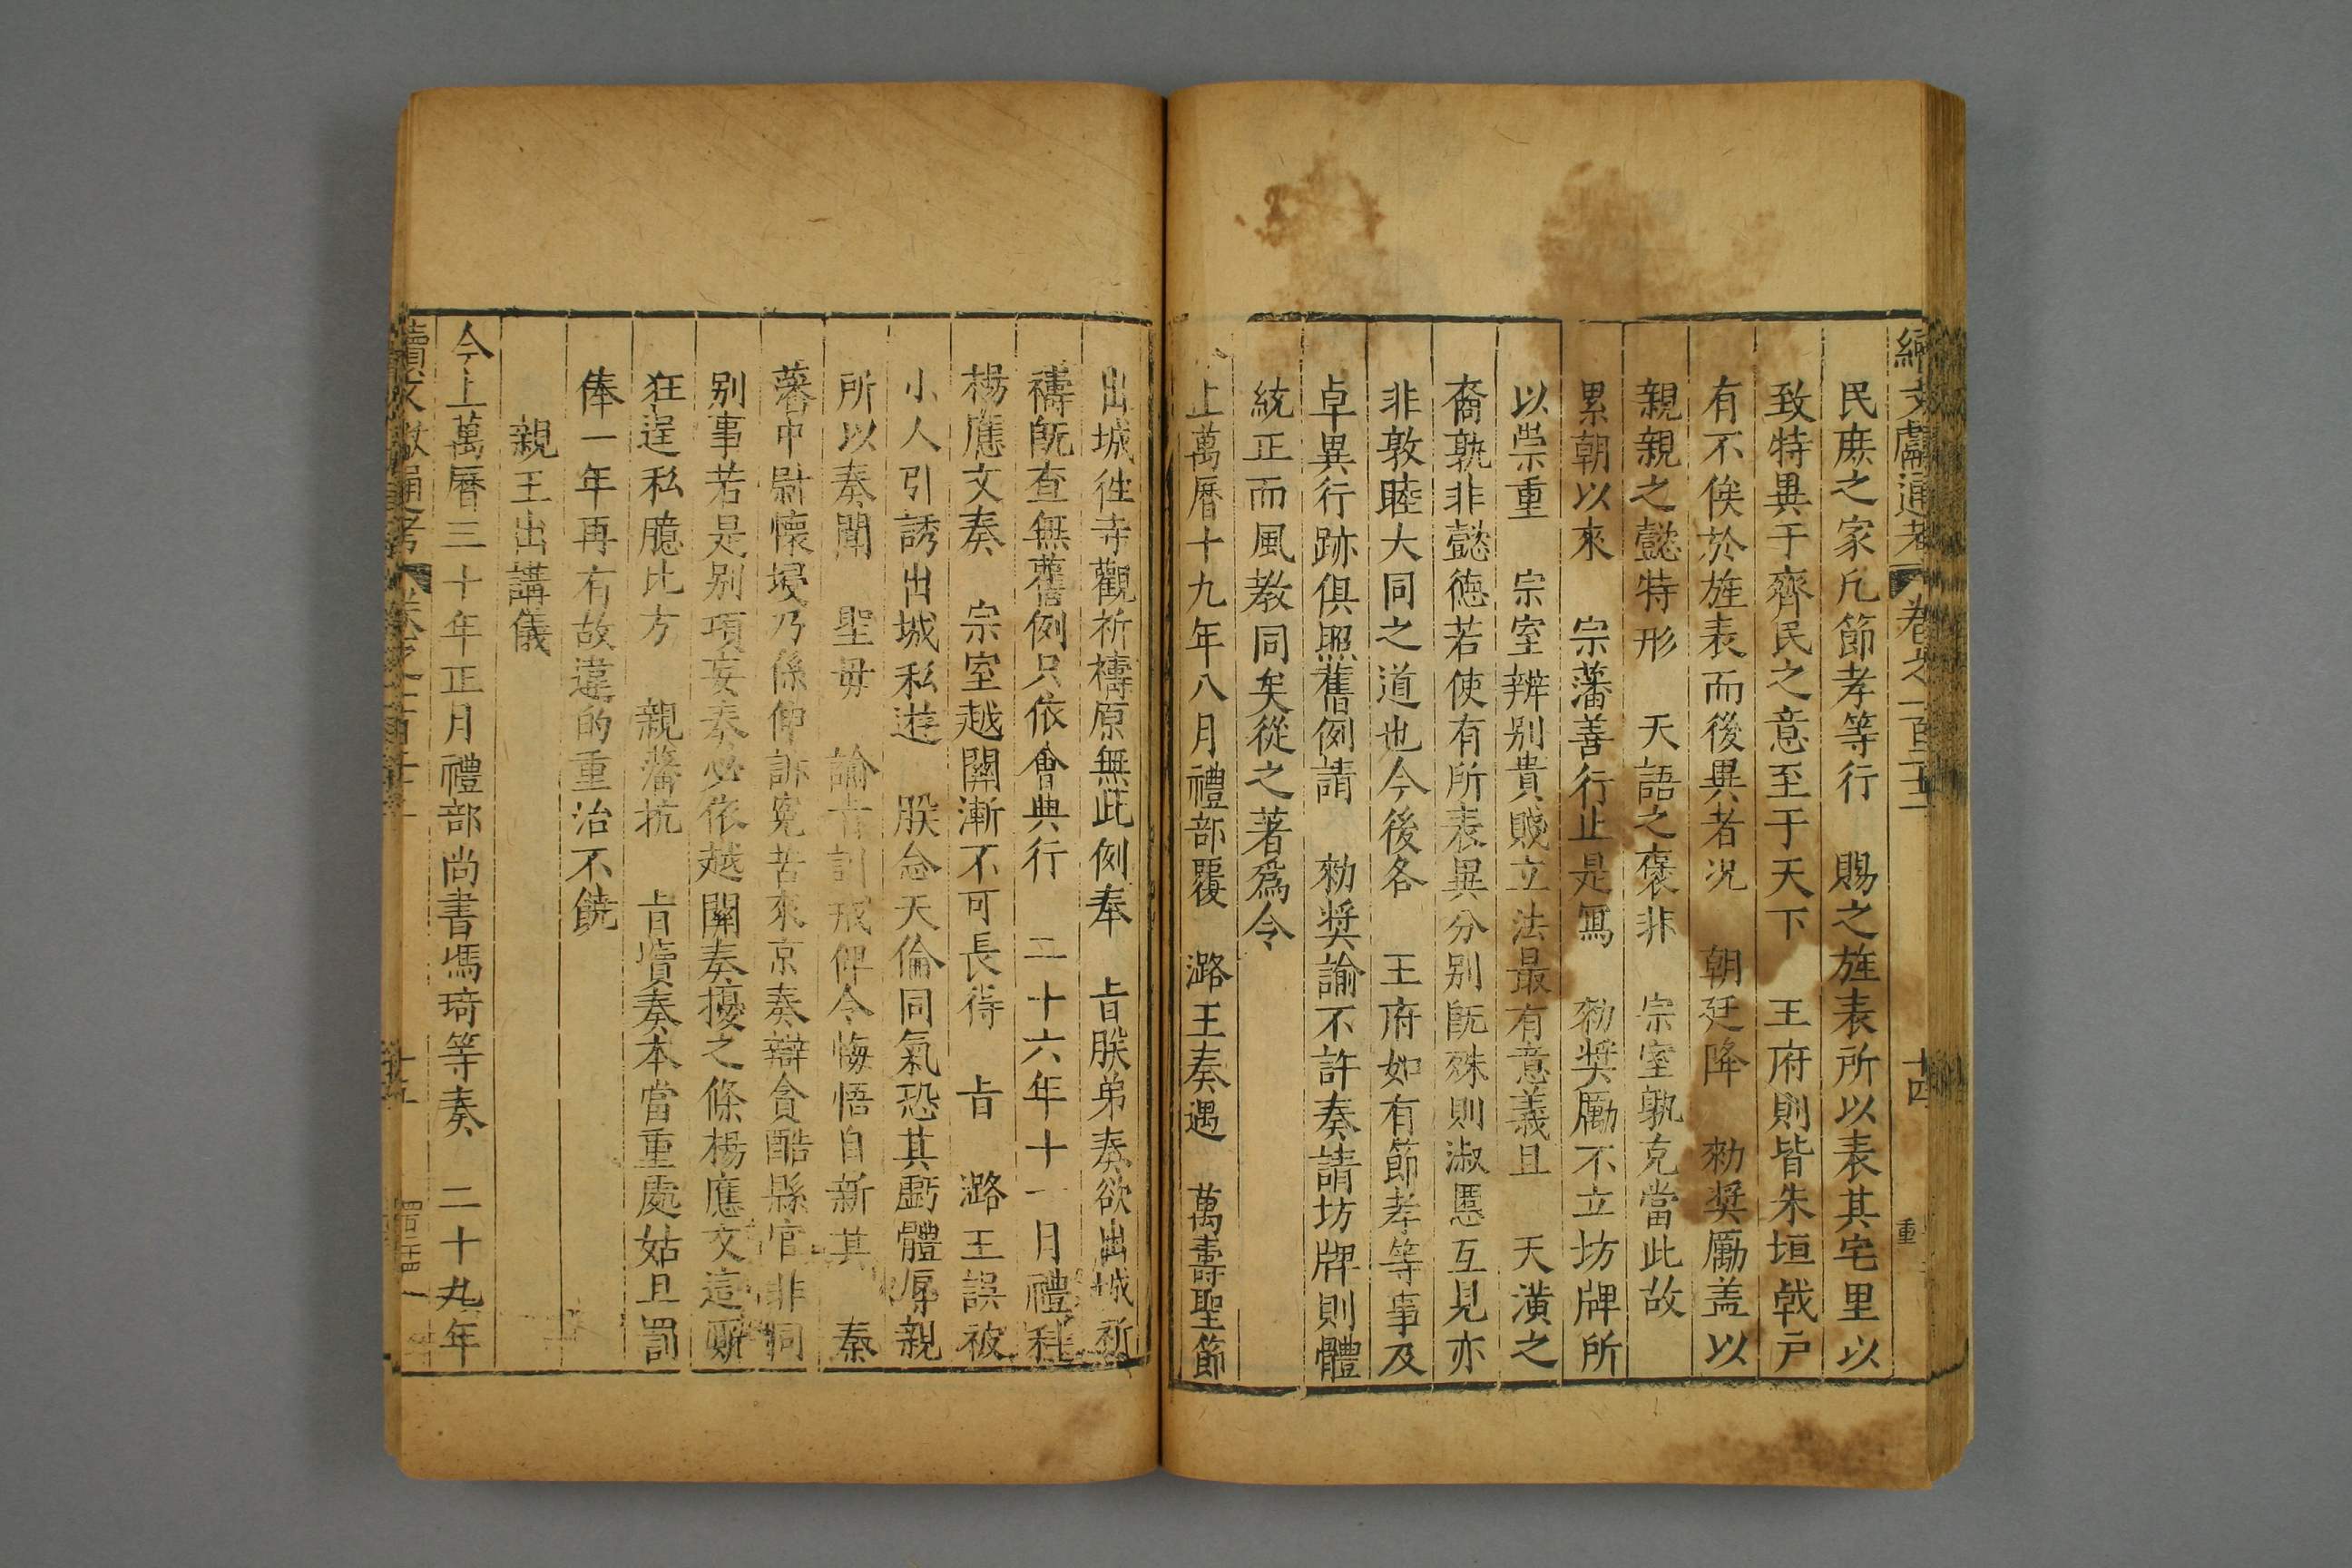 續文獻通考 卷之一百二十二 十四 重
民庶之家凡節孝等行 賜之旌表所以表其宅里以
致特異于齊民之意至于天下 王府則皆朱垣戟戶
有不俟於旌表而後異者况 朝廷降 勑奬勵盖以
親親之懿特形 天語之褒非 宗室孰克當此故
累朝以來 宗藩善行止是寫 勑奬勵不立坊牌所
以崇重 宗室辨别貴賤立法最有意義且 天潢之
裔孰非懿德若使有所表異分别旣殊則淑慝互見亦
非敦睦大同之道也今後各 王府如有節孝等事及
卓異行跡俱照舊例請 勑奬諭不許奏請坊牌則體
統正而風教同矣從之著爲令
上萬曆十九年八月禮部覆 潞王奏遇 萬壽聖節
出城徃寺觀祈禱原無此例奉 㫖朕弟奏欲出城祈
禱旣查無舊例只依會典行 二十六年十一月禮科
楊應文奏 宗室越關漸不可長得 㫖 潞王誤被
小人引誘出城私遊 朕念天倫同氣恐其虧體辱親
所以奏聞 聖毋 諭㫖訓戒俾令悔悟自新其 秦
藩中尉懷墁乃係伸訴寃苦來京奏辯貪酷縣官非同
别事若是别項妄奏必依越關奏擾之條楊應文這厮
狂逞私臆比方 親藩抗 㫖瀆奏本當重處姑且罰
俸一年再有故違的重治不饒
親王出講儀
今上萬曆三十年正月禮部尚書馮琦等奏 二十九年
續文獻通考 卷之一百二十二 十五